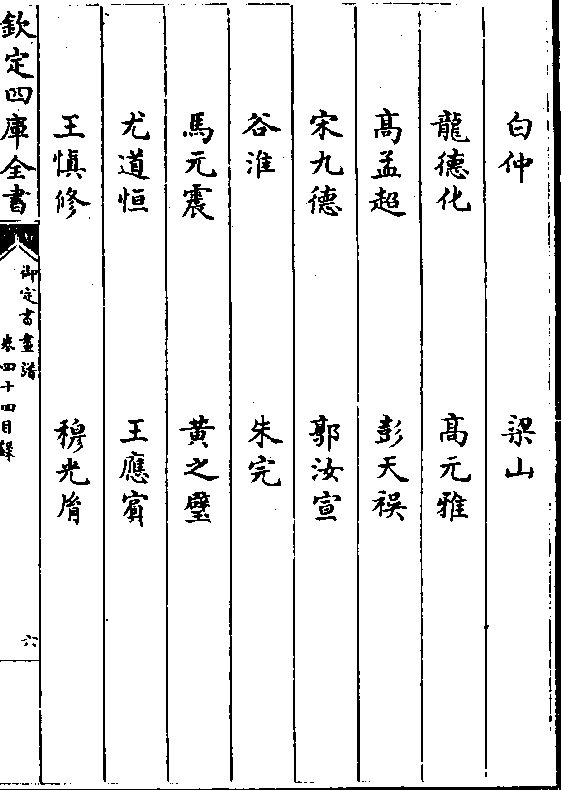 白仲　梁山
龍德化　高元雅
高孟超　彭天禄
宋九德　郭汝宣
谷淮　朱完
馬元震　黄之璧
尤道恒　王應賓
王慎修　穆光胤
欽定四庫全書
御定書畫譜
卷四十四目録
六